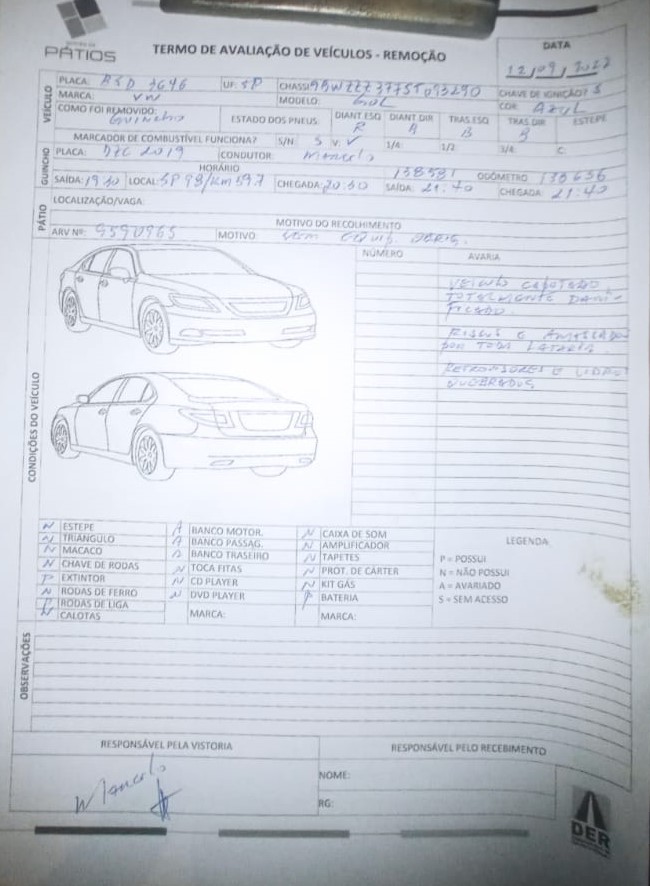 PÁTIOS
TERMO DE AVALIAÇÃO DE VEÍCULOS - REMOÇÃO
DATA
12/09/2022
VEÍCULO
PLACA: UF: SP CHASSI CHAVE DE IGNIÇÃO? S
MARCA: VW MODELO: GOL COR: AZUL
COMO FOI REMOVIDO: Guincho ESTADO DOS PNEUS: DIANT ESQ R DIANT DIR A TRAS ESQ B TRAS DIR B ESTEPE
MARCADOR DE COMBUSTÍVEL FUNCIONA? S/N: S V: V 1/4: 1/2: 3/4: C:
GUINCHO
PLACA: 2019 CONDUTOR: Marcelo
HORÁRIO ODÔMETRO
SAÍDA: 19:10 LOCAL: SP 98/Km 597 CHEGADA: 20:30 SAÍDA: 21:40 138581 138636 CHEGADA: 21:40
PÁTIO
LOCALIZAÇÃO/VAGA:
MOTIVO DO RECOLHIMENTO
ARV Nº: 9590965 MOTIVO: Sem equip. obrig.
CONDIÇÕES DO VEÍCULO
NÚMERO AVARIA
VEÍCULO CAPOTADO
TOTALMENTE DANI-
FICADO.
RISCOS E AMASSADOS
POR TODA LATARIA.
RETROVISORES E VIDROS
QUEBRADOS
N ESTEPE A BANCO MOTOR. N CAIXA DE SOM
N TRIÂNGULO A BANCO PASSAG. N AMPLIFICADOR
N MACACO A BANCO TRASEIRO N TAPETES
N CHAVE DE RODAS N TOCA FITAS N PROT. DE CÁRTER
P EXTINTOR N CD PLAYER N KIT GÁS
N RODAS DE FERRO N DVD PLAYER P BATERIA
P RODAS DE LIGA MARCA: MARCA:
N CALOTAS
LEGENDA
P = POSSUI
N = NÃO POSSUI
A = AVARIADO
S = SEM ACESSO
OBSERVAÇÕES
RESPONSÁVEL PELA VISTORIA RESPONSÁVEL PELO RECEBIMENTO
Marcelo
NOME:
RG:
DER